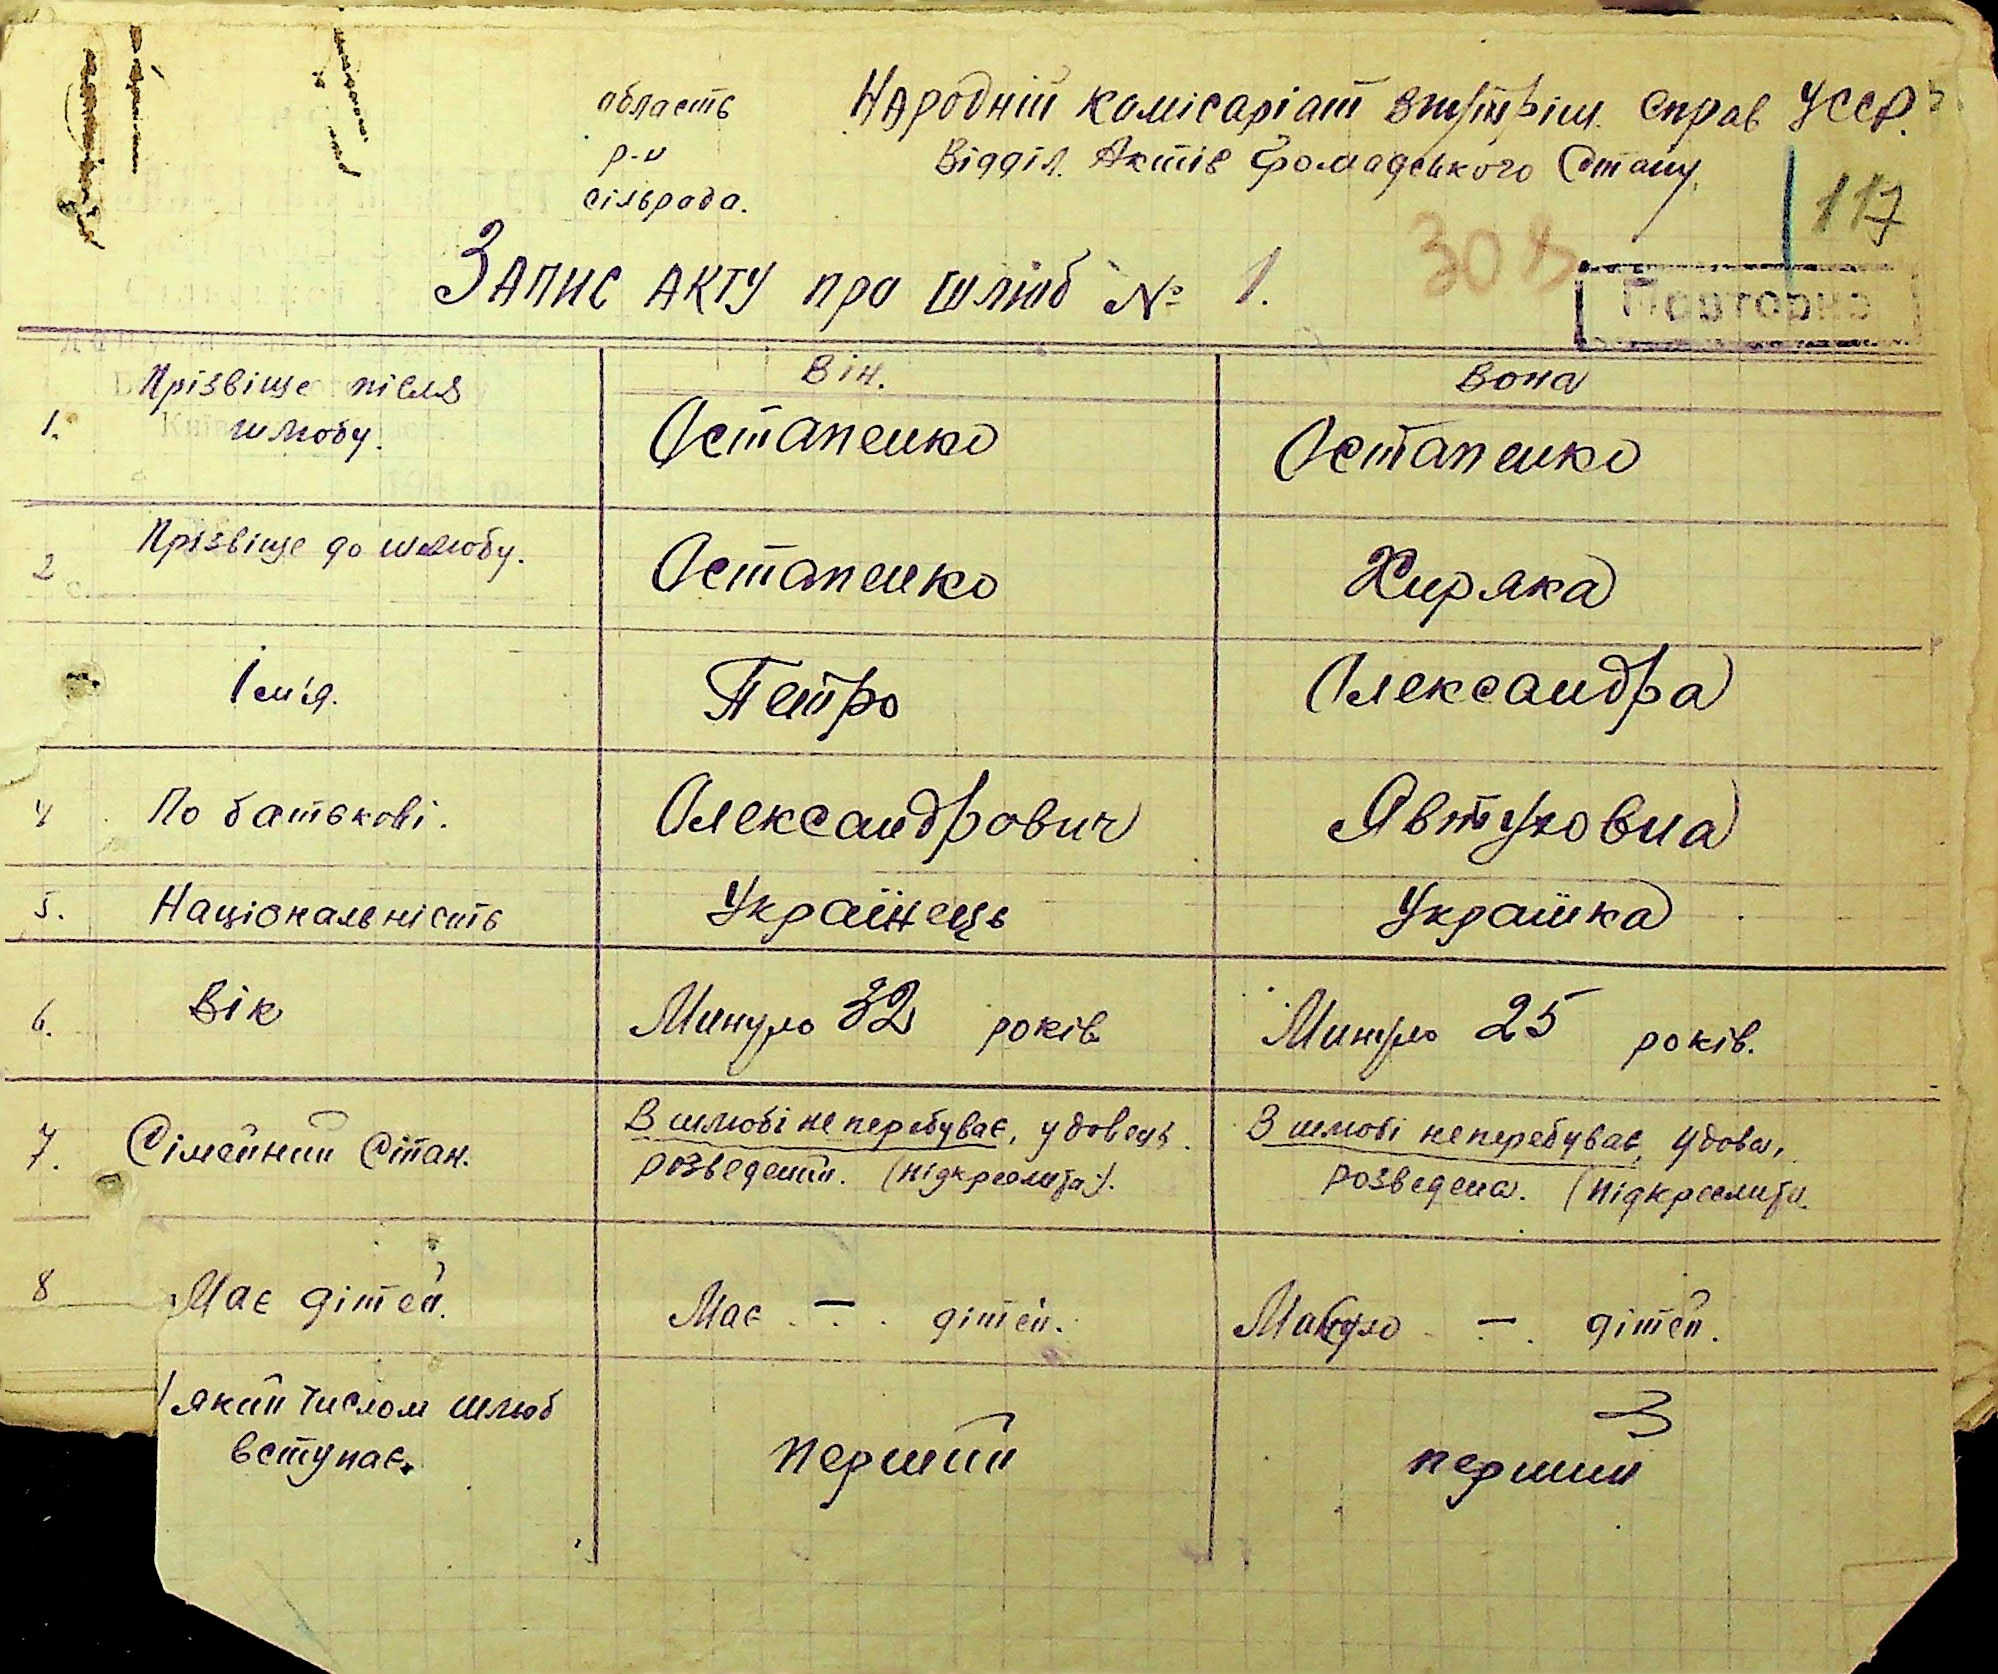 область Народній комісаріат внутріш. справ УССР.
р-н Відділ Актів Громадського Стану,
сільрада.
117
308
Запис акту про шлюб № 1.
Повторно
Він. Вона
1. Прізвіще після шлюбу. Остапенко Остапенко
2 Прізвіще до шлюбу. Остапенко Хиряка
Ім'я. Петро Олександра
4 По батькові. Олександрович Явтуховна
5. Національність Українець Українка
6. Вік Минуло 32 років. Минуло 25 років.
7. Сімейний Стан. В шлюбі не перебуває, удовець. В шлюбі не перебуває, удова,
розведений. (підкреслити). розведена. (підкреслити.
8 Має дітей. Має — дітей. — дітей.
яким числом шлюб
вступає. перший перший